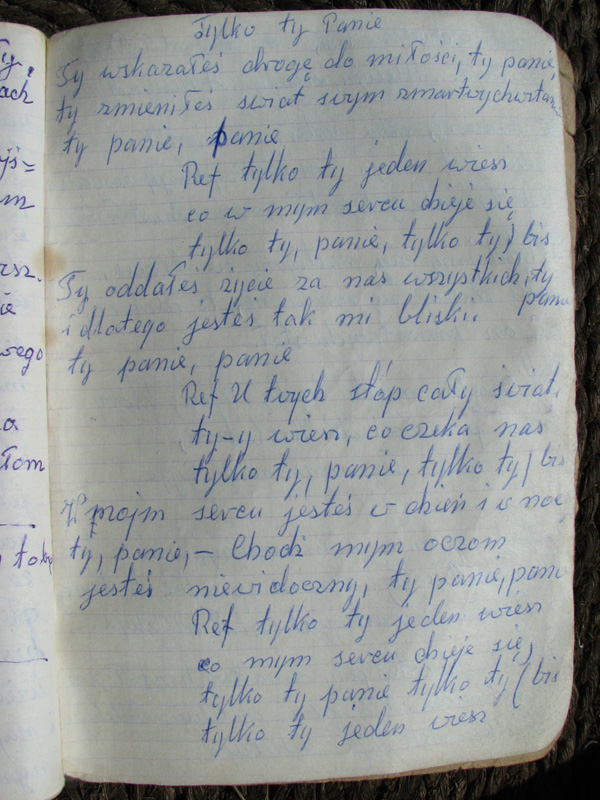 Tylko ty Panie
Ty wskazałeś drogę do miłości, ty panie,
ty zmieniłeś swiat swym zmartwychwstan
ty panie, panie
Ref tylko ty jeden wiesz
co w mym sercu dzieje się
tylko ty, panie, tylko ty) bis
Ty oddałeś życie za nas wszystkich, ty
panie
i dlatego jesteś tak mi bliski
ty panie, panie
Ref U twych stóp cały świat,
ty-y wiesz, co czeka nas
tylko ty, panie, tylko ty) bis
sercu jesteś w dzień i w noc
ty, panie, – Chodź mym oczom
jesteś niewidoczny, ty panie, pani
Ref tylko ty jeden wiesz
co mym sercu dzieje się,
tylko ty panie tylko ty (bis
tylko ty jeden wiesz
Ty,
ach
m
rsz.
ie
wego
a
tom